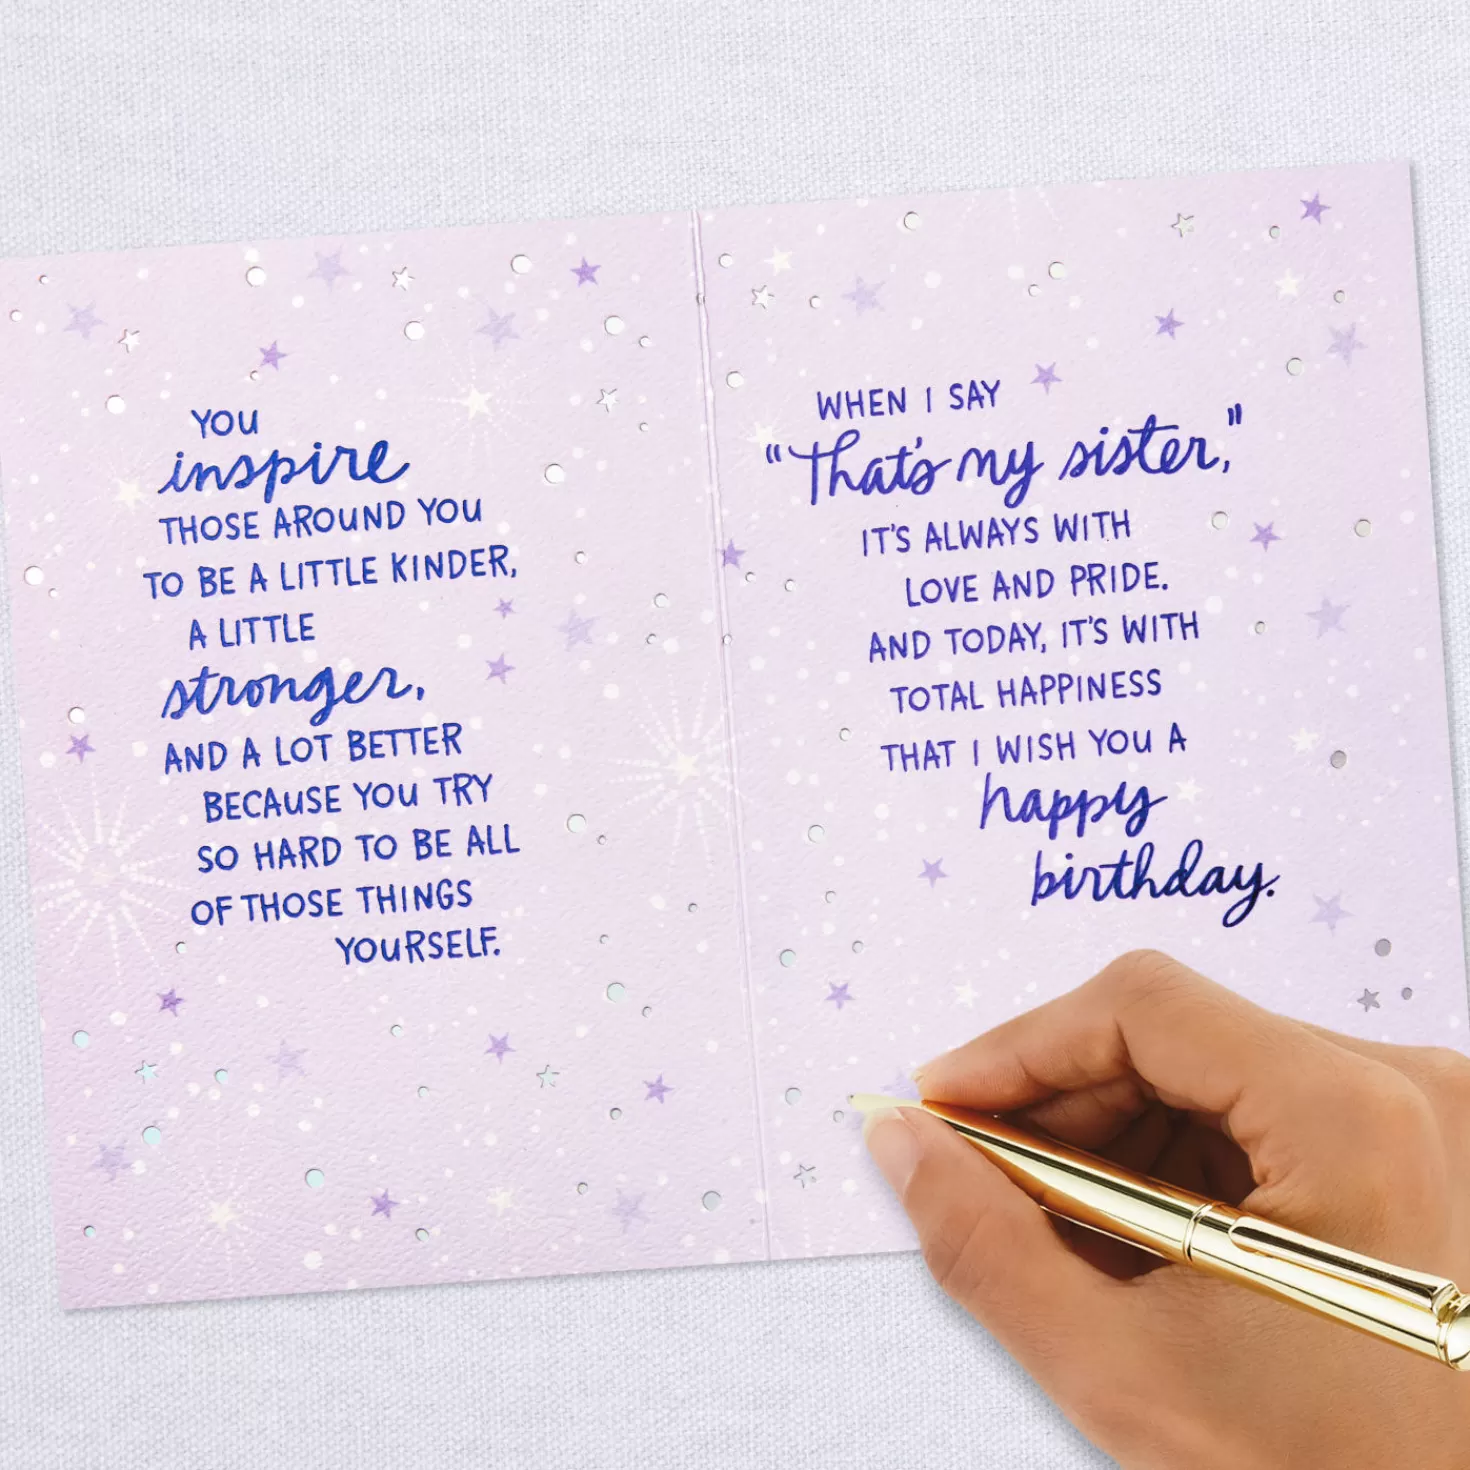 YOU
inspire
THOSE AROUND YOU
TO BE A LITTLE KINDER,
A LITTLE
stronger,
AND A LOT BETTER
BECAUSE YOU TRY
SO HARD TO BE ALL
OF THOSE THINGS
YOURSELF.
WHEN I SAY
"That's my sister,"
IT'S ALWAYS WITH
LOVE AND PRIDE.
AND TODAY, IT'S WITH
TOTAL HAPPINESS
THAT I WISH YOU A
happy
birthday.